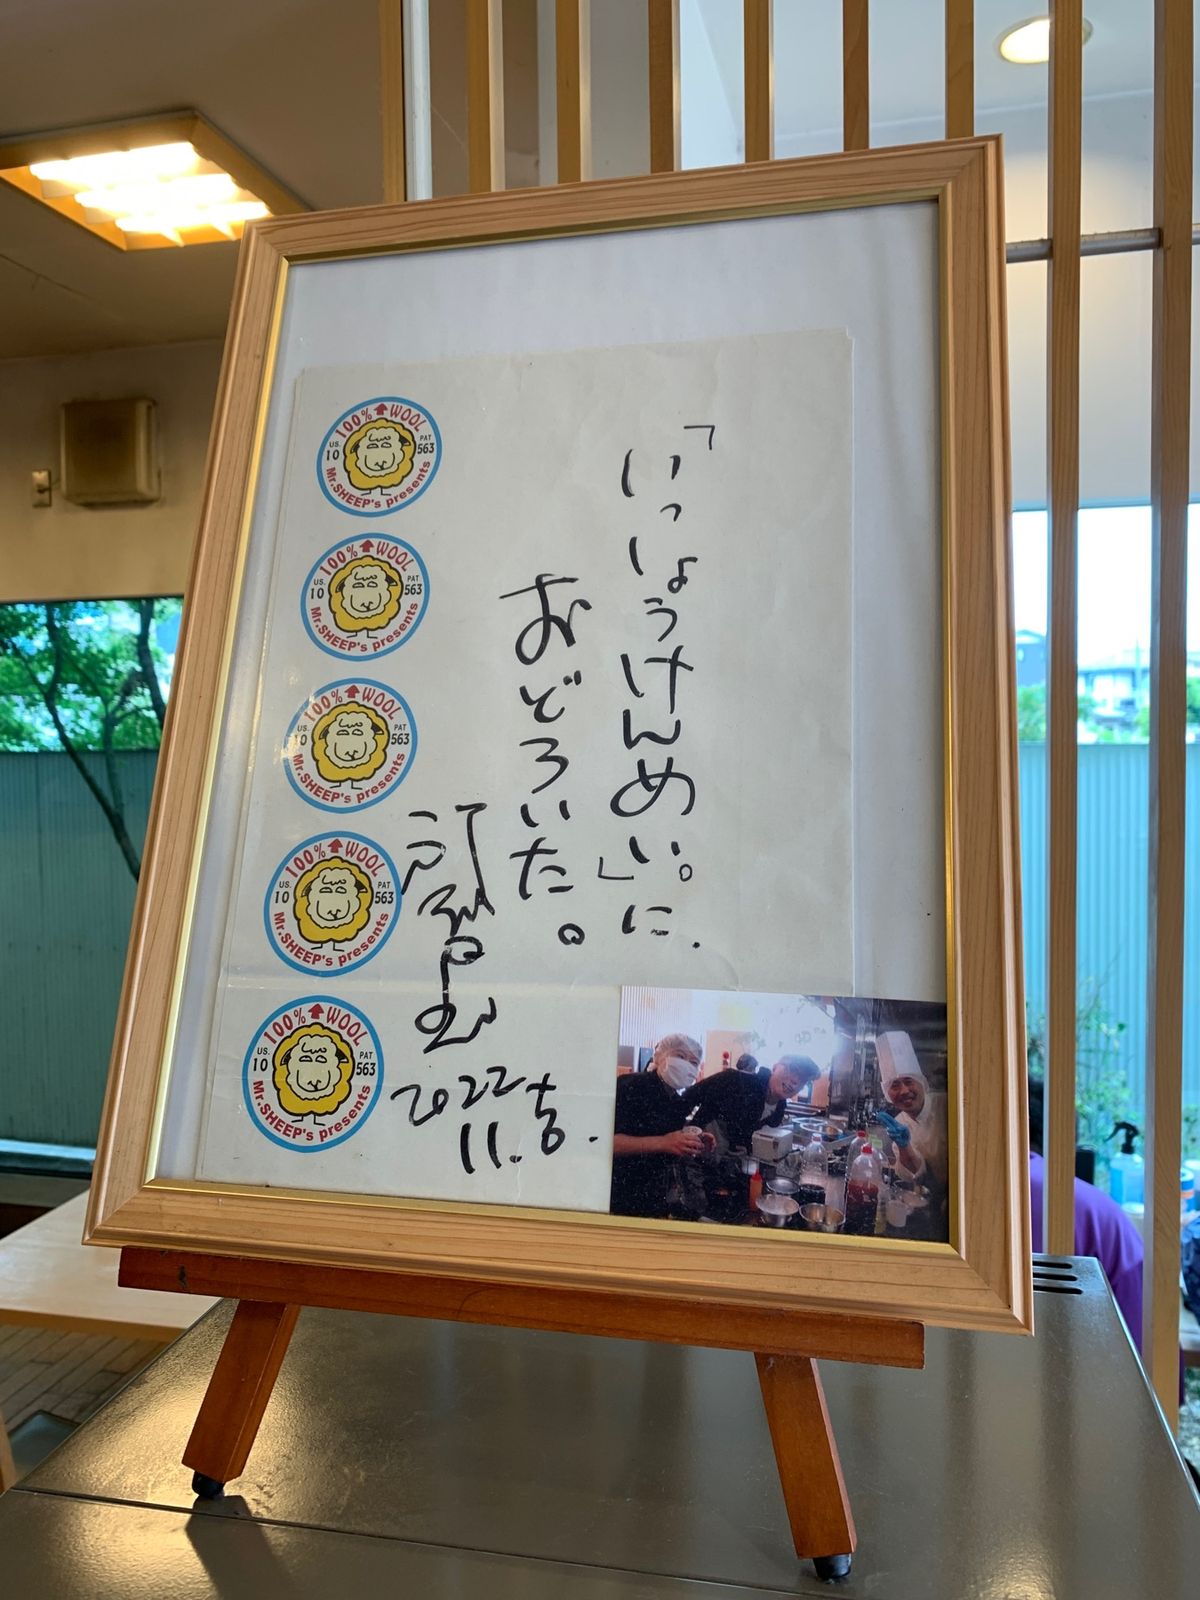 「いっしょうけんめい。」に.
おどろいた。
2022
11.
100% WOOL
US. PAT
10 563
Mr.SHEEP's presents
100% WOOL
US. PAT
10 563
Mr.SHEEP's presents
100% WOOL
US. PAT
10 563
Mr.SHEEP's presents
100% WOOL
US. PAT
10 563
Mr.SHEEP's presents
100% WOOL
US. PAT
10 563
Mr.SHEEP's presents